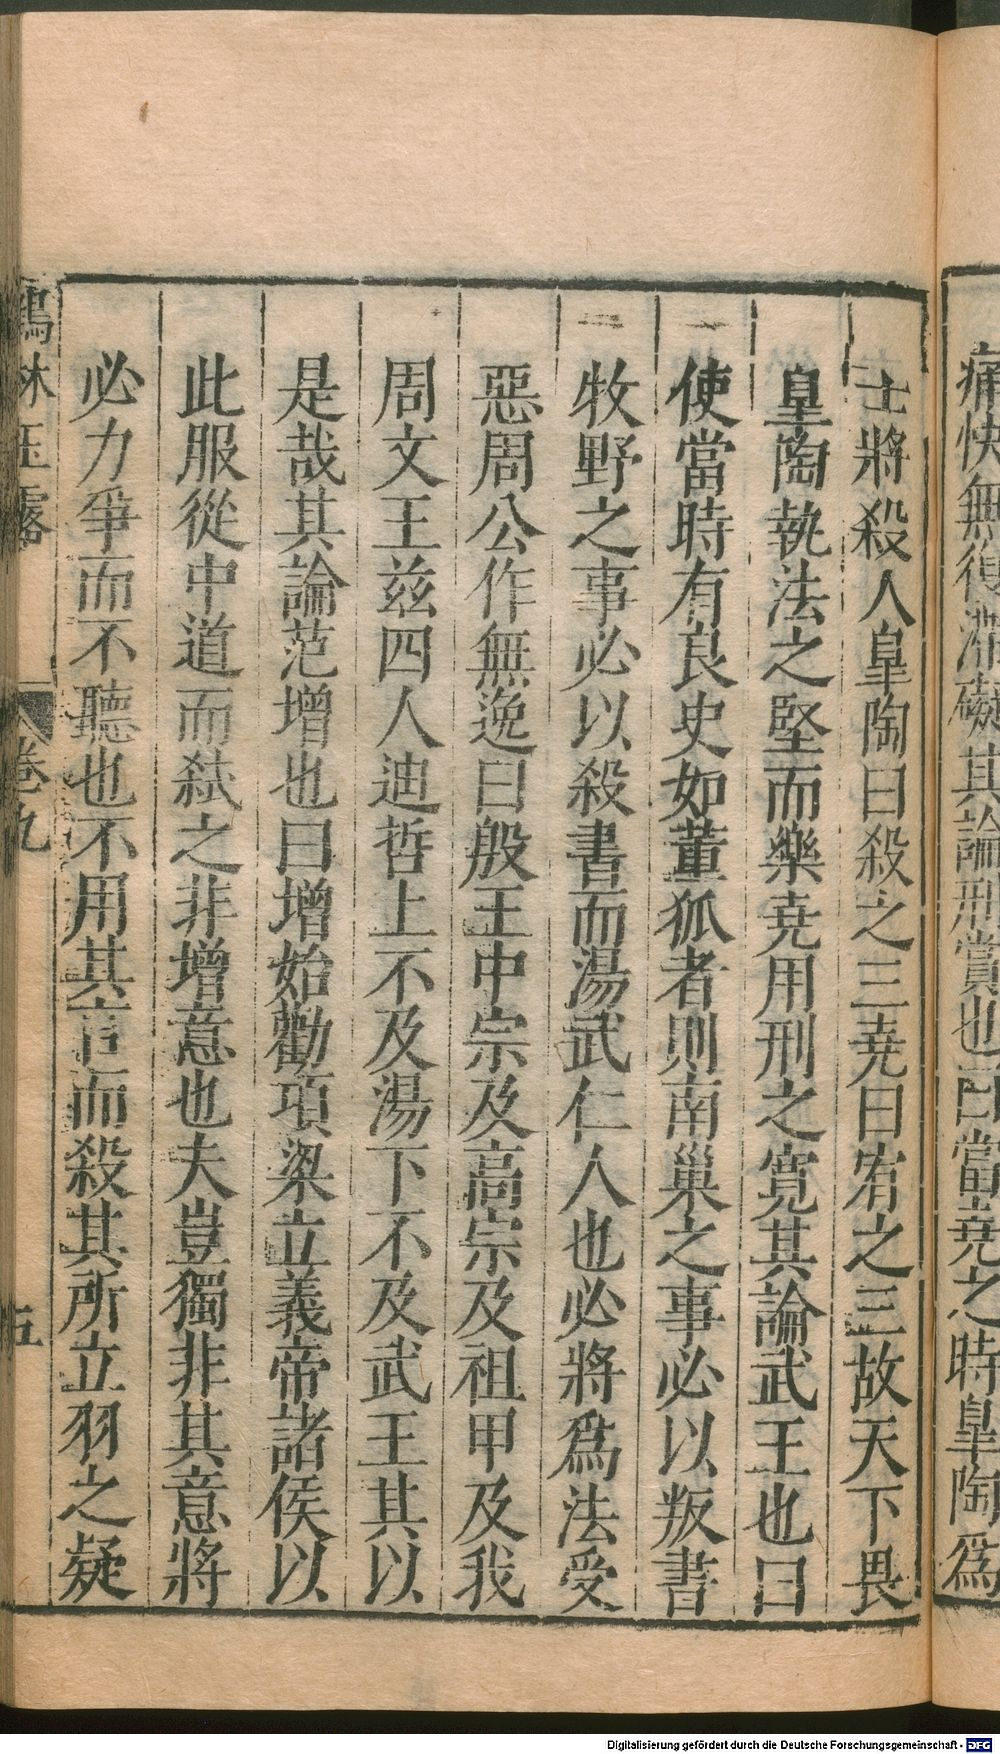 痛快無復滯礙其論刑賞也曰當堯之時皐陶爲
士將殺人皐陶曰殺之三堯曰宥之三故天下畏
皐陶執法之堅而樂堯用刑之寬其論武王也曰
使當時有良史如董狐者則南巢之事必以叛書
牧野之事必以殺書而湯武仁人也必將爲法受
惡周公作無逸曰殷王中宗及高宗及祖甲及我
周文王兹四人迪哲上不及湯下不及武王其以
是哉其論范增也曰增始勸項梁立義帝諸侯以
此服從中道而弑之非增意也夫豈獨非其意將
必力爭而不聽也不用其言而殺其所立羽之疑
鶴林玉露
卷九
五
Digitalisierung gefördert durch die Deutsche Forschungsgemeinschaft - DFG